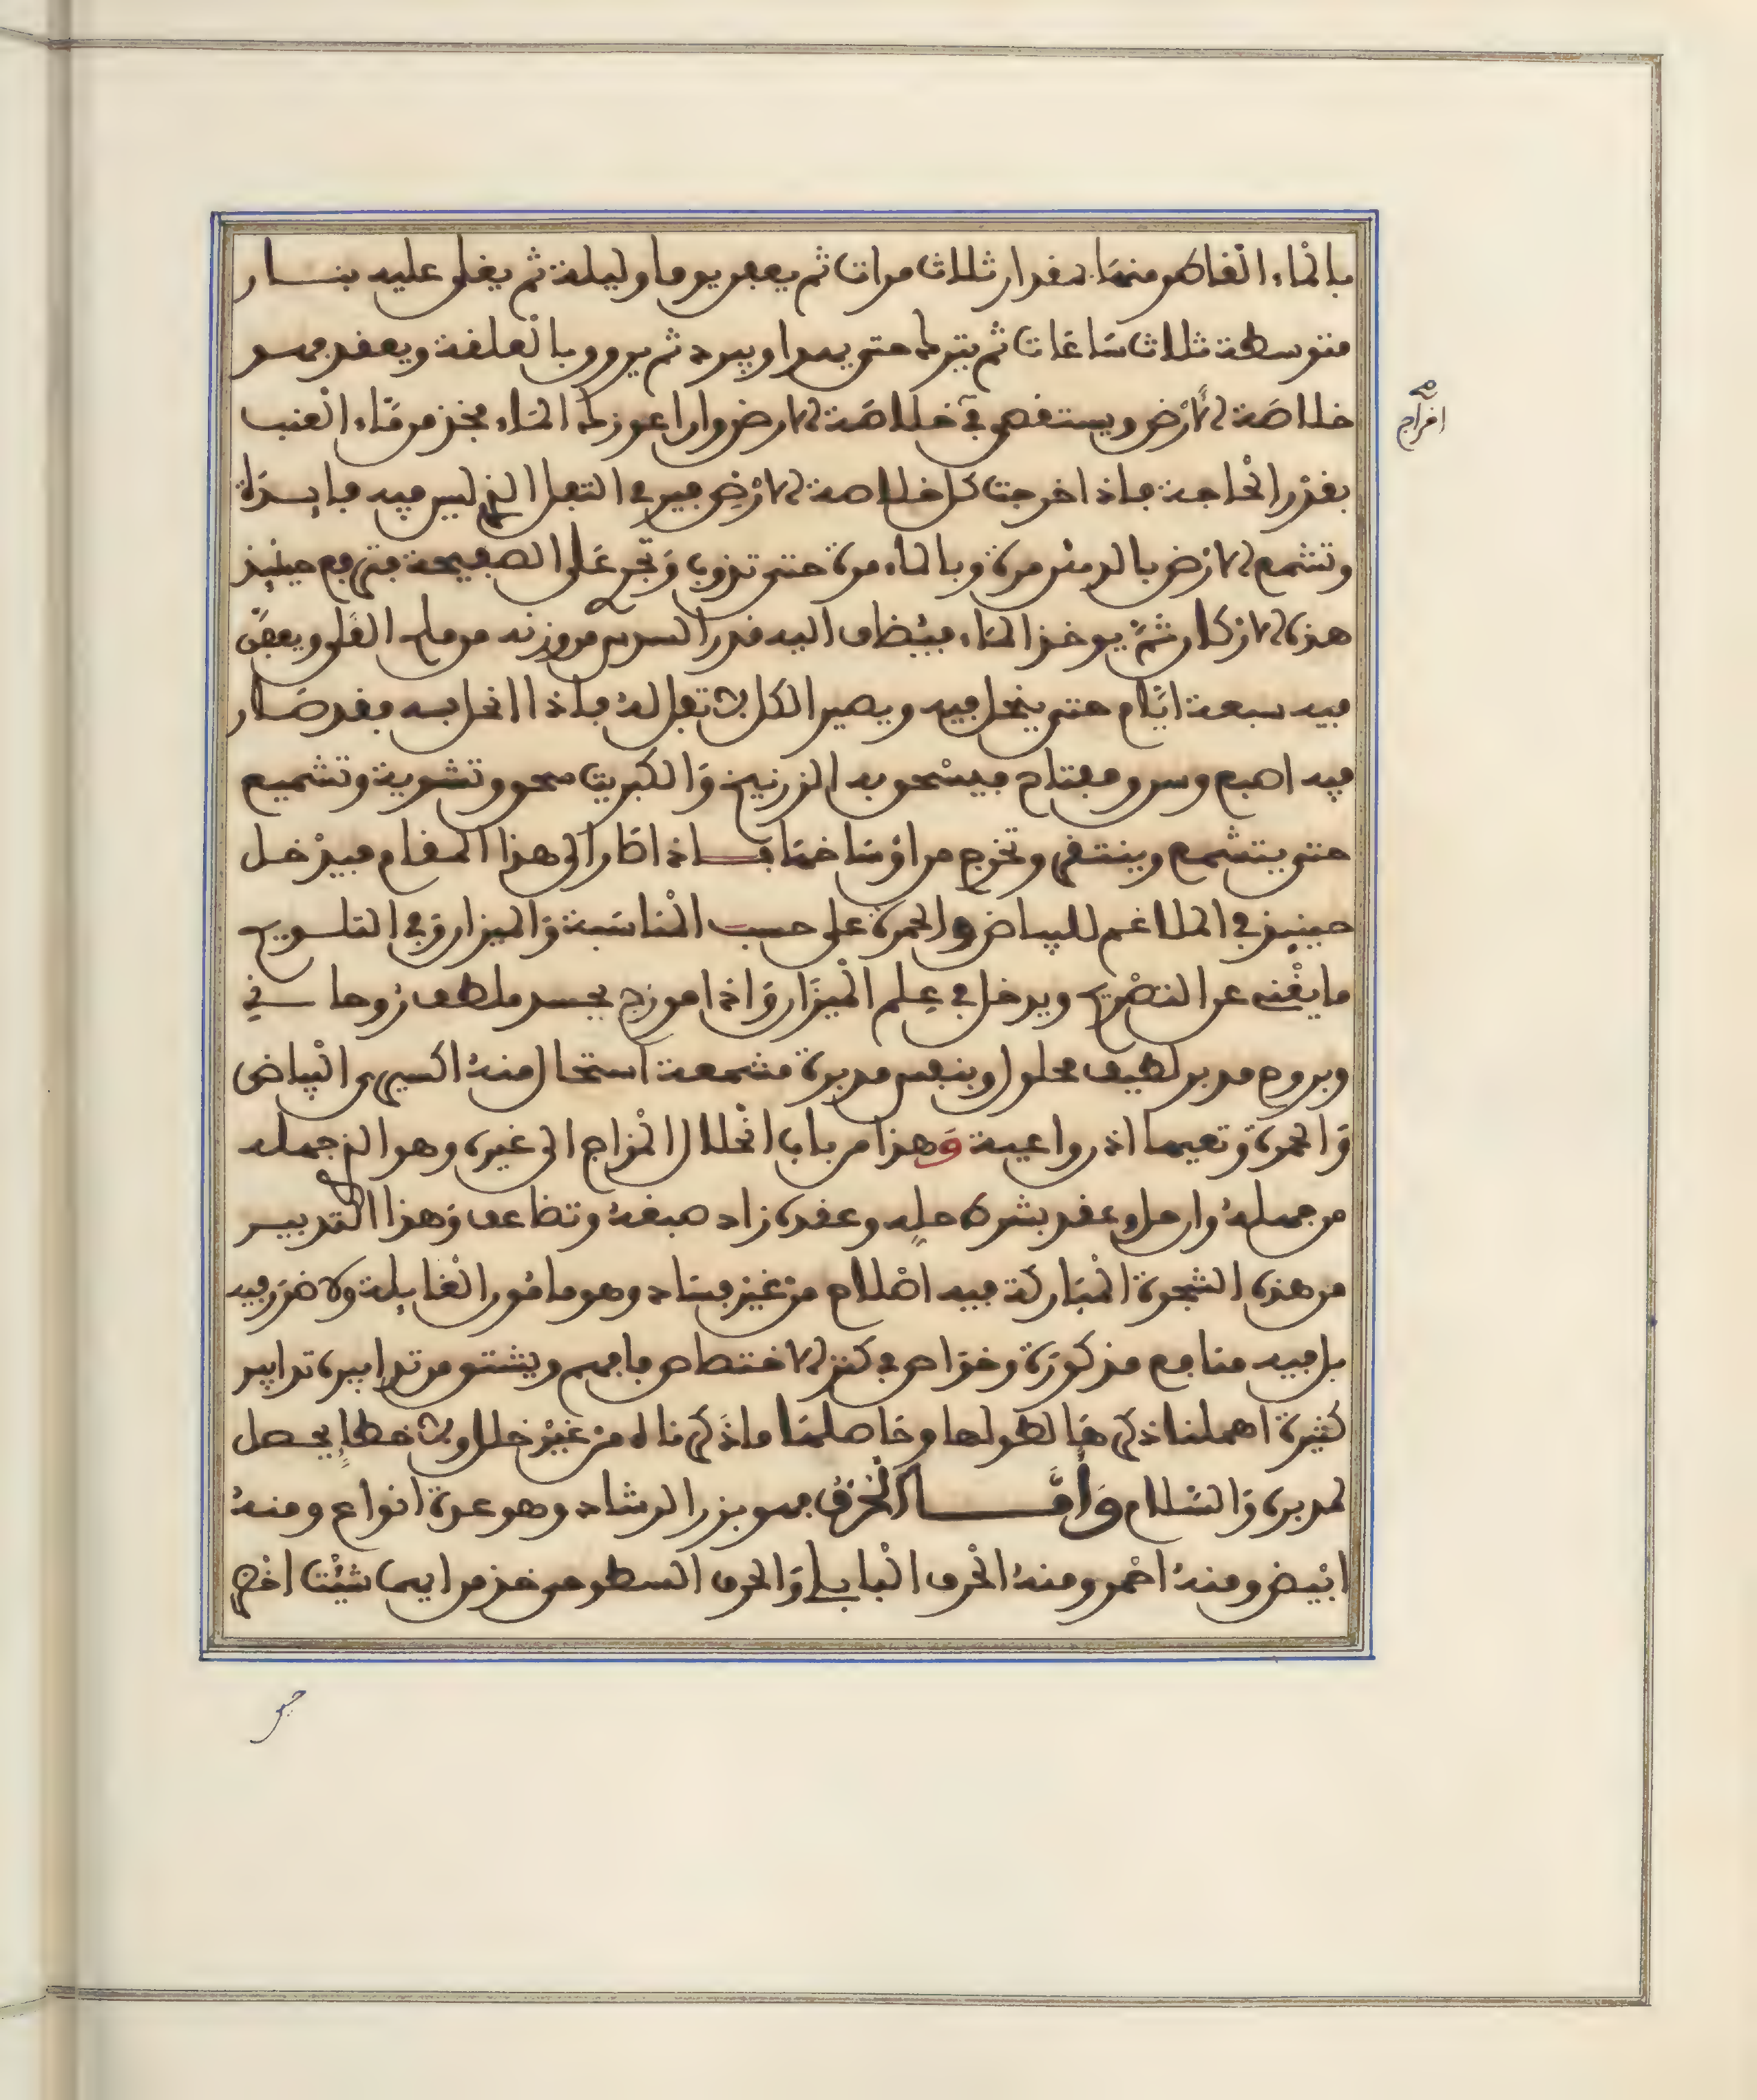 بالماء القاطر منها بمقدار ثلاث مرات ثم يعفن يوما وليلة ثم يغلى عليه بنار
متوسطة ثلاث ساعات ثم يترك حتى يهدا ويبرد ثم يروق بالعلقة ويعقد فهو
خلاصة الأرض ويستقصى في خلاصة الارض وان اعوزك الماء فخذ من ماء العنب
بقدر الحاجة فاذا اخرجت كل خلاصة الارض فيرمى التفل الذي ليس فيه فايدة
وتشمع الارض بالدهن مرة وبالماء مرة حتى تذوب وتجري على الصفيحة فترفع حينئذ
هذه الاركان ثم يوخذ الماء فيضاف اليه قدر السدس من وزنه من ملح القلي ويعفن
فيه سبعة ايام حتى ينحل فيه ويصير الكل لا تفل له فاذا انحل به فقد صار
فيه اصبع وسر ومفتاح فيسحق به الزرنيخ والكبريت سحق وتشوية وتشميع
حتى يتشمع وينتقى وتخرج من اوساخها فاذا صار الى هذا المقام فيدخل
حينئذ في الملاغم للبياض والحمرة على حسب المناسبة والميزان وفي التلويح
ما يغني عن التصريح ويدخل في علم الميزان واذا موزج بجسد ملطف روحاني
وبروح مدبر لطيف محلول وبنفس مدبرة مشمعة استحال منه اكسيرى البياض
والحمرة وتعيها اذن واعية وهذا من باب انحلال المزاج الى غيره وهو الذي جهله
من جهله وان حل وعقد بشرط حله وعقده زاد صبغه وتضاعف وهذا التدبير
من هذه الشجرة المباركة فيه اصلاح من غير فساد وهو مامون الغايلة ولا ضرر فيه
بل فيه منافع مذكورة وخواص في كنز الاختصاص فافهم ويشتق من تدابيره تدابير
كثيرة اهملنا ذكرها لطولها وحاصلها ما ذكرناه من غير خلل ولا خطإ يحصل
لمدبره والسلام وأما الحُرْف فهو بزر الرشاد وهو عدة انواع ومنه
ابيض ومنه احمر ومنه الحرف البابلي والحرف السطوحي خذ من ايها شئت اخرج
اخراج